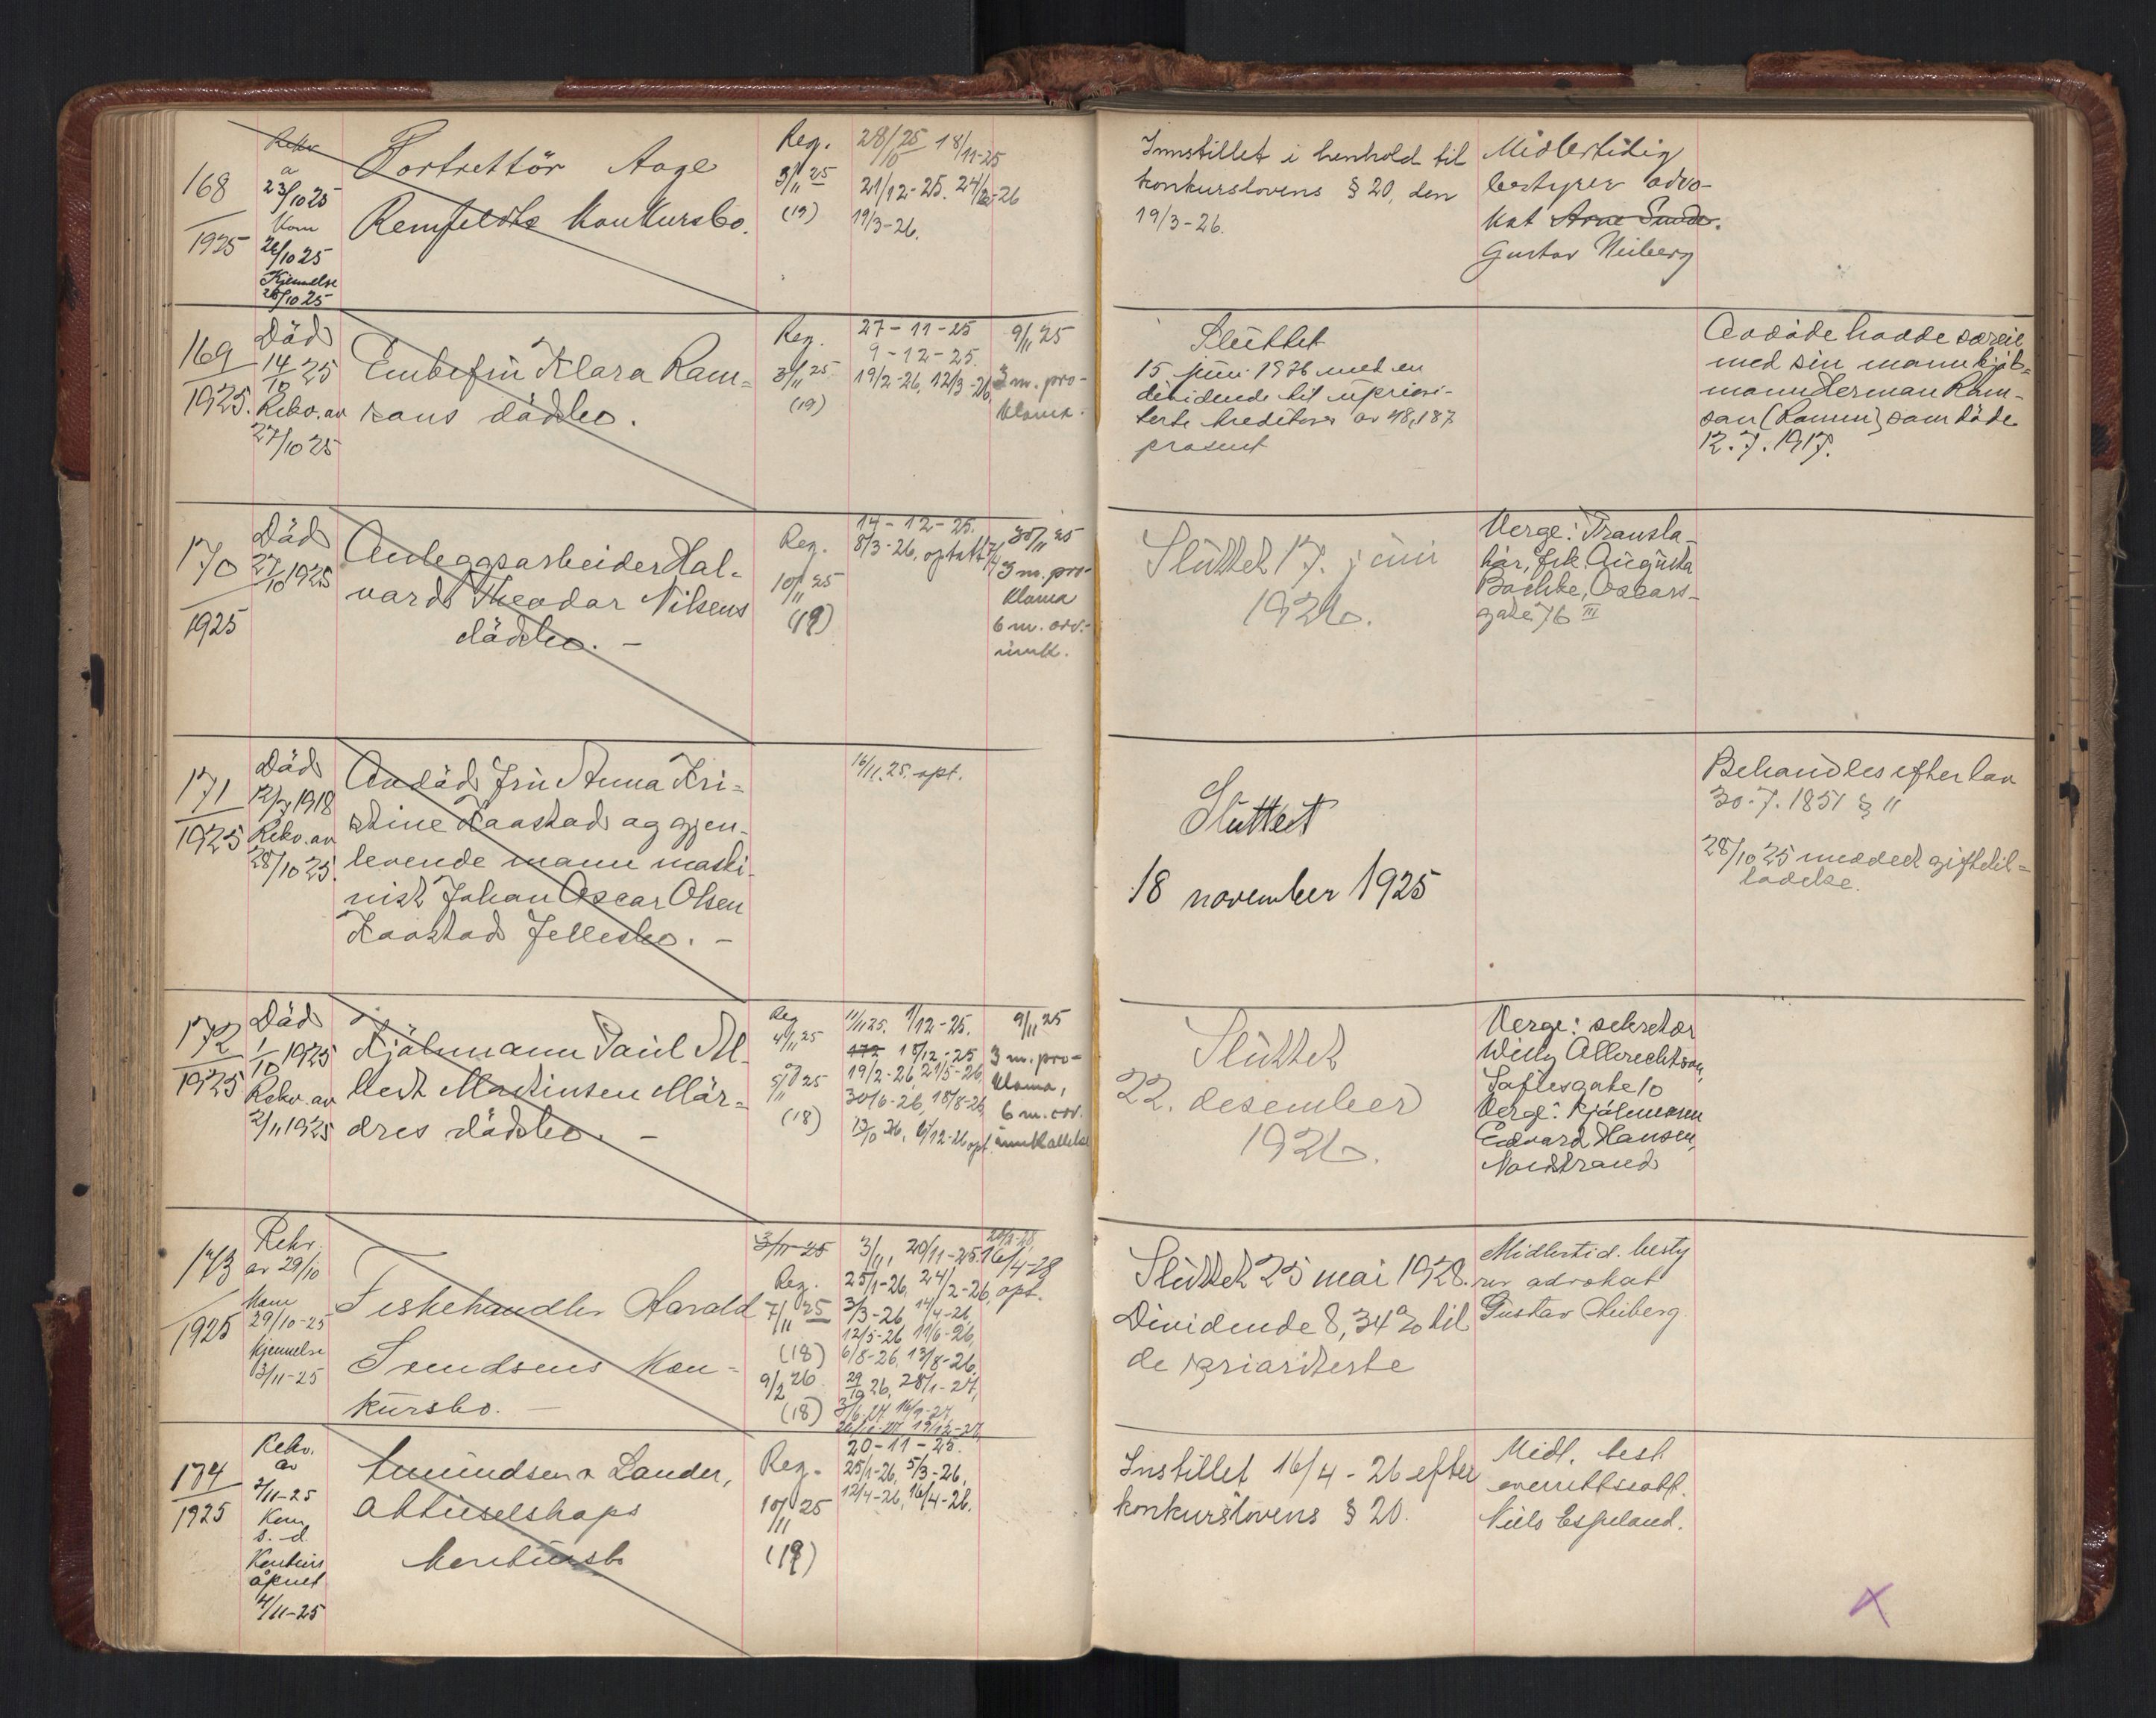 168
1925
Rekv
a
23/10 25
Kom
26/10 25
Kjennelse
28/10 25
Portrettör Aage
Remfeldts konkursbo.
Reg.
3/11 25
(19)
28/10 25 18/11-25
21/12-25. 24/2-26
19/3-26.
Innstillet i henhold til
konkurslovens § 20, den
19/3-26.
Midlertidig
bestyrer advo-
kat Arne Sunde.
Gustav Heiberg
169
1925.
Död
14/10 25
Rekv. av
27/10 25
Enkefru Klara Ram-
sans dödsbo.
Reg.
3/11 25
(19)
27-11-25
9-12-25.
19/2-26, 12/3-26
9/11 25
3 m. pro-
klama.
Sluttet
15 juni 1926 med en
dividende til upriori-
terte kreditorer av 48,187
prosent
Avdöde hadde særeie
med sin mann kjöb-
mann Herman Ram-
san (Ramm) som döde
12.7.1917.
170
1925
Död
27/10 1925
Anleggsarbeider Hal-
vard Theodor Nilsens
dödsbo. -
Reg.
10/11 25
(19)
14-12-25.
8/3-26, optatt
30/11 25
3 m. pro-
klama
6 m. arv.-
innk.
Sluttet 17. juni
1926.
Verge: Transla-
tör, frk. Augusta
Bachke, Oscars-
gate 76 III
171
1925
Död
12/7 1918
Rekv. av
28/10 25.
Avdöd fru Anna Kri-
stine Kaastad og gjen-
levende mann maski-
nist Johan Oscar Olsen
Kaastad fellesbo. -
16/11.25. opt.
Sluttet
18 november 1925
Behandles efter lov
30.7.1851 § 11
28/10 25 meddelt giftetil-
ladelse.
172
1925
Död
1/10 1925
Rekv. av
2/11 1925
Kjöbmann Paul Al-
bert Martinsen Mör-
dres dödsbo. -
Reg
4/11 25
5/11 25
(18)
11/11 25. 1/12-25.
172 15/12-25
19/2-26, 21/5-26,
30/6-26, 18/8-26,
13/10 26, 6/12-26 opt.
9/11 25
3 m. pro-
klama,
6 m. arv.
innkallelse
Sluttet
22. desember
1926.
Verge: sekretær
Willy Albrechtson,
Sofiesgate 10
Verge: kjöbmann
Edvard Hansen,
Nordstrand
173
1925
Rekv.
av 29/10
Kom
29/10-25
Kjennelse
3/11-25
Fiskehandler Harald
Svendsens kon-
kursbo. -
3/11-25
Reg.
7/11 25
(18)
9/2 26
(18)
3/11, 20/11-25.
25/1-26, 24/2-26,
3/3-26, 14/4-26,
12/5-26, 11/6-26,
6/8-26, 13/8-26,
29/10 26, 28/1-27,
16/4-28
opt.
Sluttet 25 mai 1928.
Dividende 8,34% til
de prioriterte
Midlertid. besty
rer advokat
Gustav Heiberg.
174
1925
Rekv.
av
2/11-25
Kom
s.d.
Konkurs
åpnet
4/11-25
Amundsen & Lander,
aktieselskaps
konkursbo
Reg.
10/11 25
(19)
20-11-25.
25/1-26, 5/3-26,
12/4-26, 16/4-26.
Instillet 16/4-26 efter
konkurslovens § 20.
Midl. best.
overrettssakf.
Niels Espeland.
X